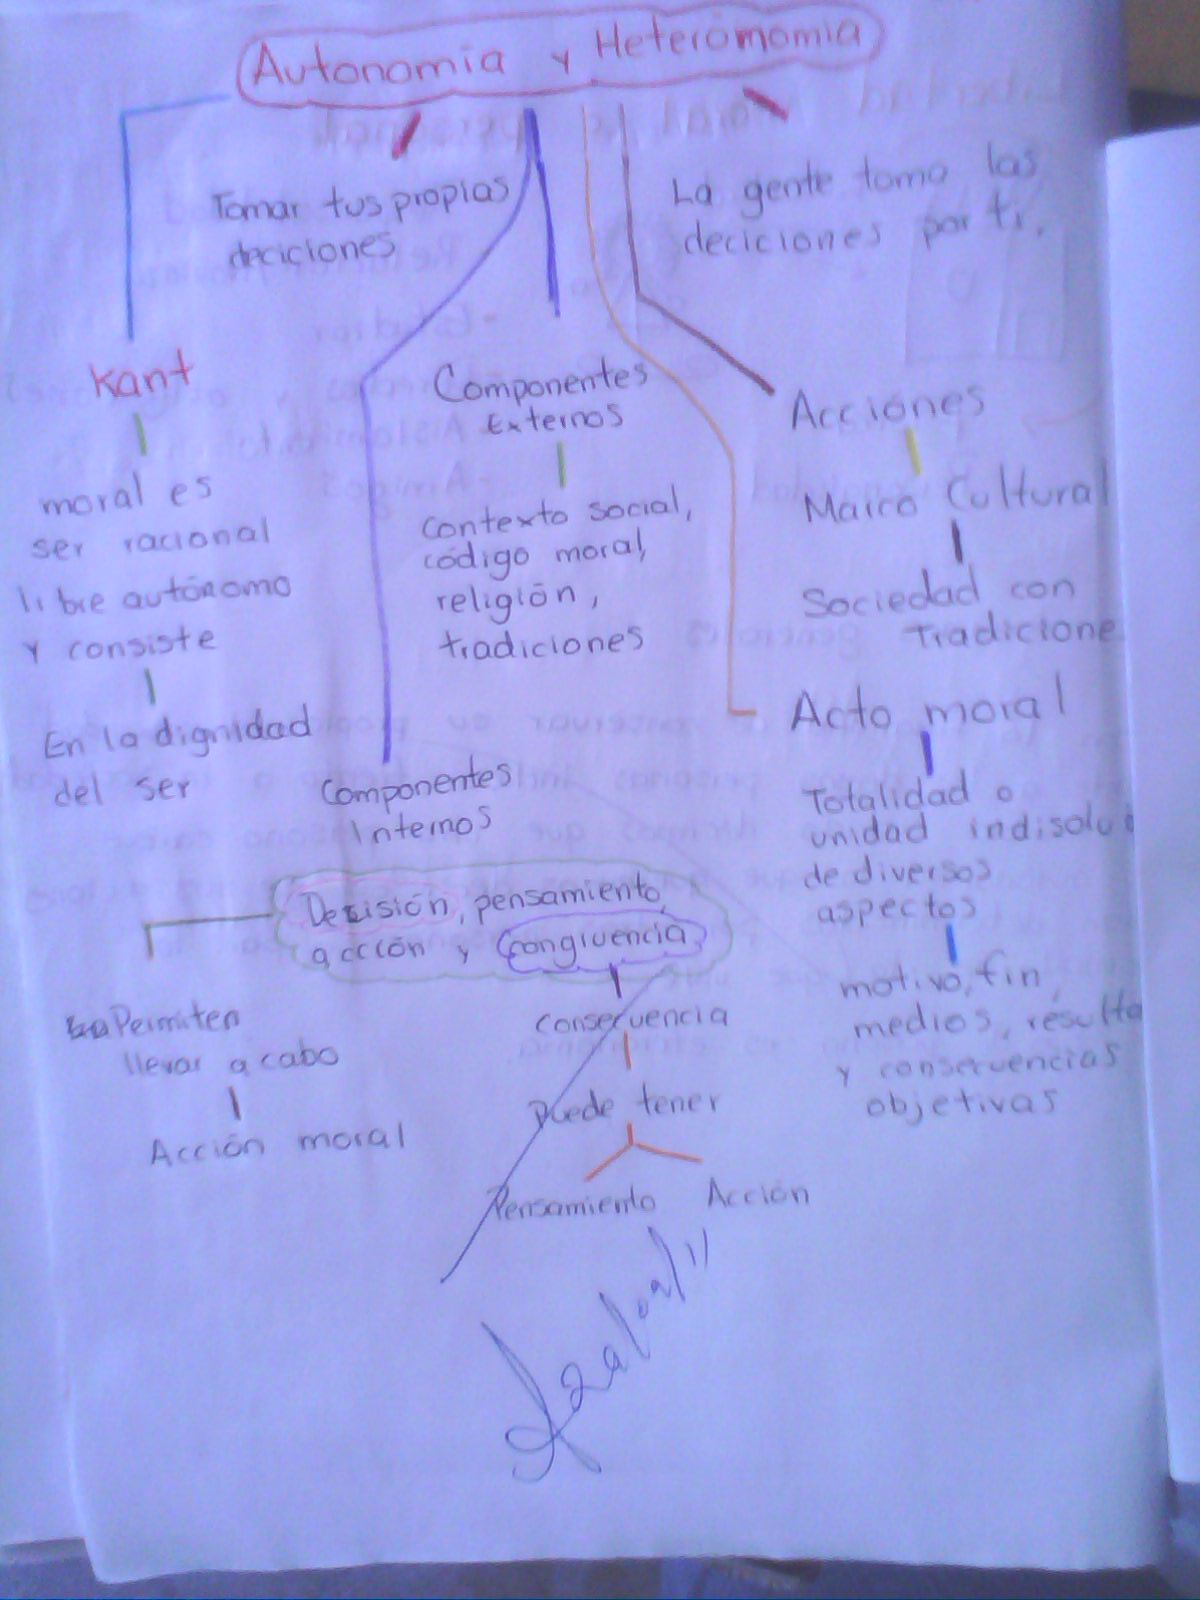 Autonomía y Heteromomia
Tomar tus propias
deciciones
La gente toma las
deciciones por ti.
Kant
moral es
ser racional
libre autónomo
y consiste
En la dignidad
del ser
Componentes
Externos
Contexto social,
código moral,
religión,
tradiciones
Acciones
Marco Cultural
Sociedad con
tradicione
Acto moral
Totalidad o
unidad indisolu
de diversos
aspectos
motivo, fin,
medios, resulta
y consecuencias
objetivas
Componentes
Internos
Decisión, pensamiento,
acción y congruencia
Permiten
llevar a cabo
Acción moral
consecuencia
Puede tener
Pensamiento Acción